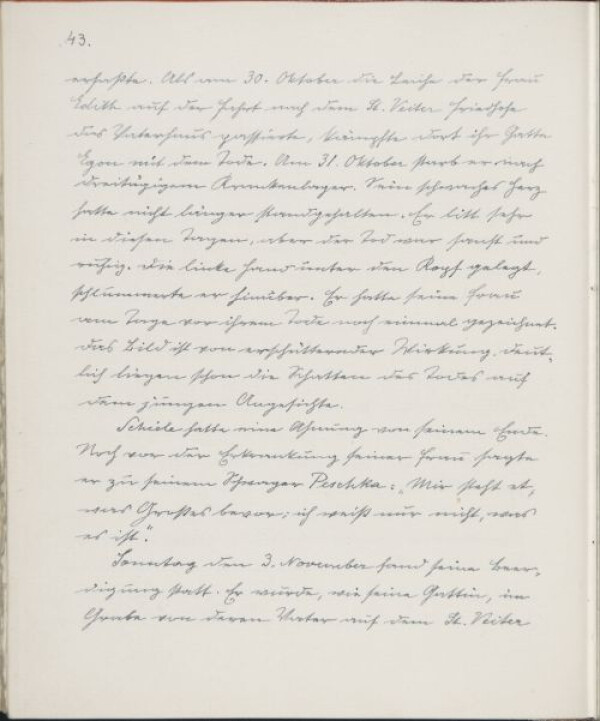 43.
erfaßte. Als am 30. Oktober die Leiche der Frau
Edith auf der Fahrt nach dem St. Veiter Friedhofe
das Vaterhaus passierte, kämpfte dort ihr Gatte
Egon mit dem Tode. Am 31. Oktober starb er nach
dreitägigem Krankenlager. Sein schwaches Herz
hatte nicht länger standgehalten. Er litt sehr
in diesen Tagen, aber der Tod war sanft und
ruhig. Die linke Hand unter den Kopf gelegt,
schlummerte er hinüber. Er hatte seine Frau
am Tage vor ihrem Tode noch einmal gezeichnet.
Das Bild ist von erschütternder Wirkung, deut-
lich liegen schon die Schatten des Todes auf
dem jungen Angesichte.
Schiele hatte eine Ahnung von seinem Ende.
Noch vor der Erkrankung seiner Frau sagte
er zu seinem Schwager Peschka: „Mir steht et-
was Großes bevor; ich weiß nur nicht, was
es ist".
Sonntag den 3. November fand seine Beer-
digung statt. Er wurde, wie seine Gattin, im
Grabe von deren Vater auf dem St. Veiter